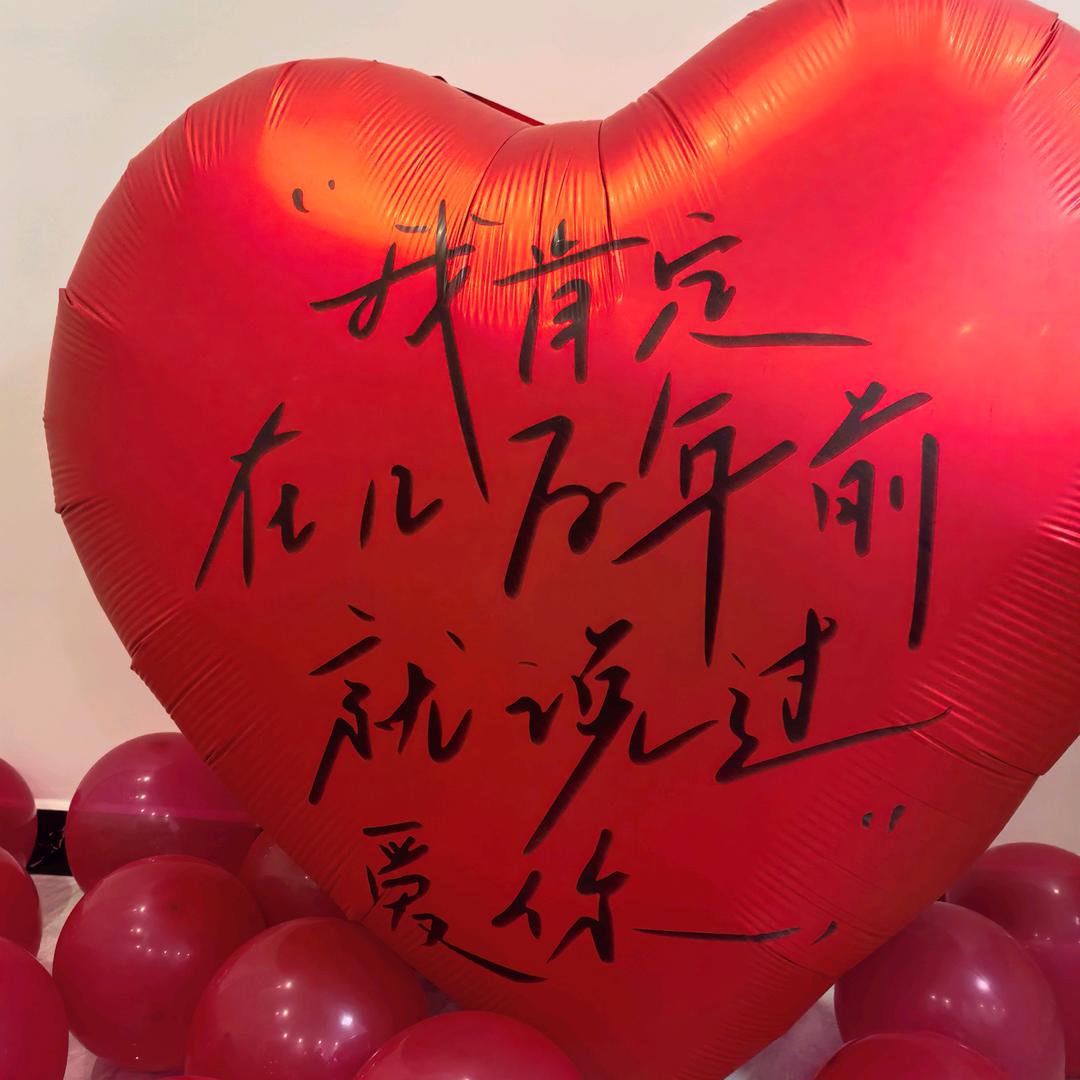 “我肯定
在几万年前
就说过
爱你”